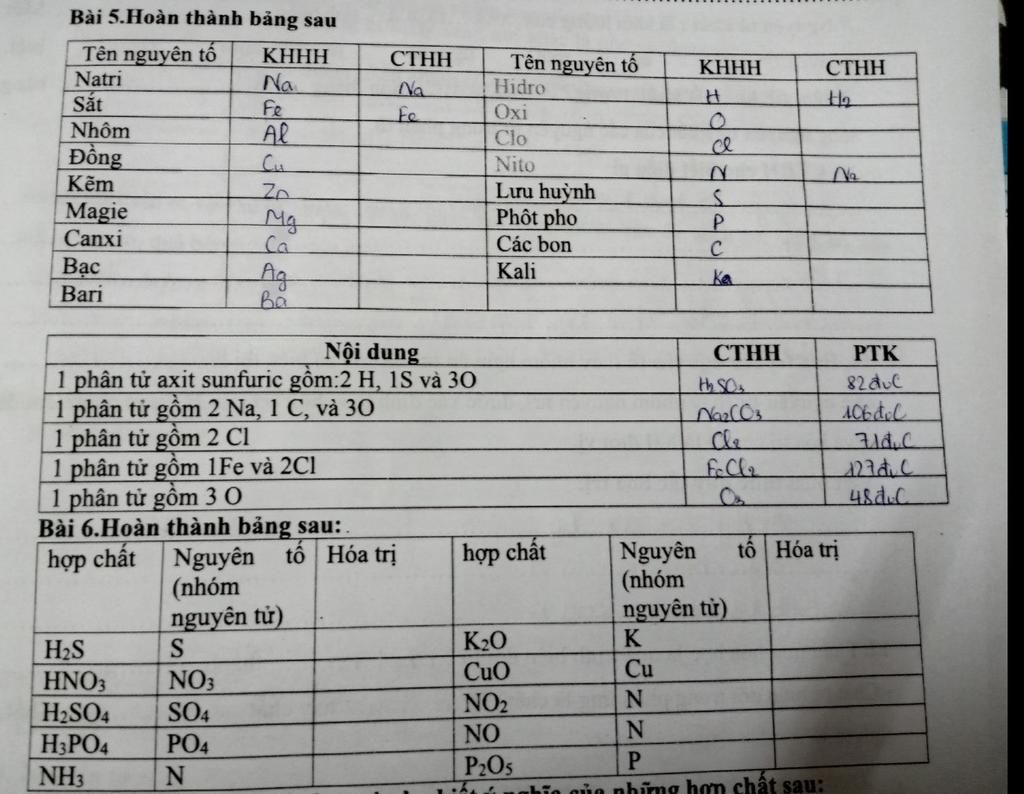 Bài 5.Hoàn thành bảng sau
Tên nguyên tố KHHH CTHH Tên nguyên tố KHHH CTHH
Natri Na Na Hidro H H2
Sắt Fe Fe Oxi O
Nhôm Al Clo Cl
Đồng Cu Nito N N2
Kẽm Zn Lưu huỳnh S
Magie Mg Phôt pho P
Canxi Ca Các bon C
Bạc Ag Kali Ka
Bari Ba
Nội dung CTHH PTK
1 phân tử axit sunfuric gồm:2 H, 1S và 3O H2SO3 82đvC
1 phân tử gồm 2 Na, 1 C, và 3O Na2CO3 106đvC
1 phân tử gồm 2 Cl Cl2 71đvC
1 phân tử gồm 1Fe và 2Cl FeCl2 127đvC
1 phân tử gồm 3 O O3 48đvC
Bài 6.Hoàn thành bảng sau:
hợp chất Nguyên tố Hóa trị hợp chất Nguyên tố Hóa trị
(nhóm (nhóm
nguyên tử) nguyên tử)
H2S S K2O K
HNO3 NO3 CuO Cu
H2SO4 SO4 NO2 N
H3PO4 PO4 NO N
NH3 N P2O5 P
ý nghĩa của những hợp chất sau: